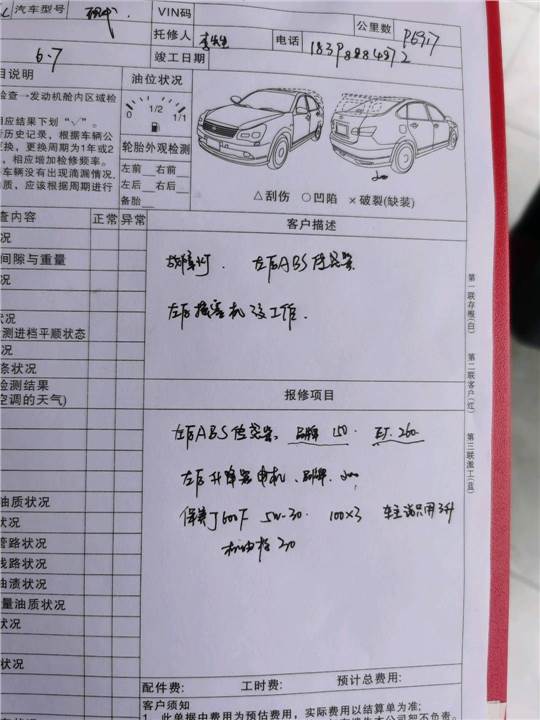 汽车型号 现代 VIN码
托修人 李先生 电话 18398884872 公里数
6.7 竣工日期
目说明 油位状况
检查→发动机舱内区域检
相应结果下划“√”。
历史记录，根据车辆公
更换，更换周期为1年或2
，相应增加检修频率。
车辆没有出现滴漏情况.
质，应该根据周期进行
0 1/2 1/1
轮胎外观检测
左前 右前
左后 右后
备胎
△刮伤 ○凹陷 ×破裂(缺装)
查内容 正常 异常 客户描述
况
间隙与重量
故障灯. 左后ABS传感器
左后 机 工作.
状况
测进档平顺状态
况
条状况
检测结果
空调的天气)
报修项目
左后ABS传感器, 品牌 150. 260
左后升降器电机、品牌.
保养 5W-30. 100×3 车主 只用3升
机油格 20
油质状况
状况
管路状况
线路状况
油渍状况
量油质状况
状况
状况
配件费: 工时费: 预计总费用:
客户须知
1、此单据中费用为预估费用，实际费用以结算单为准。
第一联存根(白)
第二联客户(红)
第三联派工(蓝)